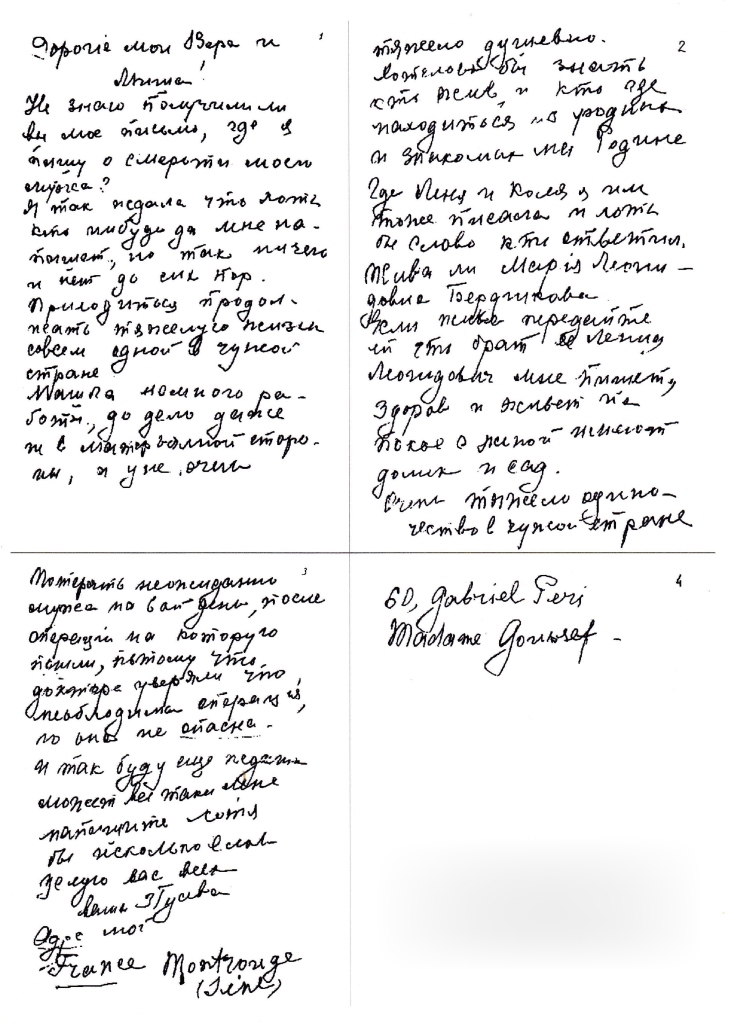 1
Дорогіе мои Вера и
Миша!
Не знаю получили ли
вы мое письмо, где я
пишу о смерти моего
мужа?
Я так ждала что хоть
кто нибудь да мне на-
пишет, но так ничего
и нет до сих пор.
Приходиться продол-
жать тяжелую жизнь
совсем одной в чужой
стране
немного ра-
боты, да дело даже
не в матерьяльной сторо-
ны, а уже очень
2
тяжело душевно.
Хотелось бы знать
кто жив и кто где
находиться из родных
и знакомых на Родине
Где Леня и Коля я им
тоже писала и хоть
бы слово кто ответил.
Жива ли Марія Леони-
довна Бердникова
Если жива передайте
ей что брат ее Леонид
Леонидович мне пишет,
здоров и живет на
покое с женой имеют
домик и сад.
Очень тяжело одино-
чество в чужой стране
3
Потерять неожиданно
мужа на 8 ой день, после
операціи на которую
пошли, потому что,
доктора уверяли что
необходима операція,
но она не опасна.
И так буду еще ждать
может все таки мне
напишите хотя
бы несколько слов
Целую вас всех
ваша ЗГусева
Адрес мой
France Montrouge
(Seine)
4
60, Gabriel Peri
Madame Goussef -